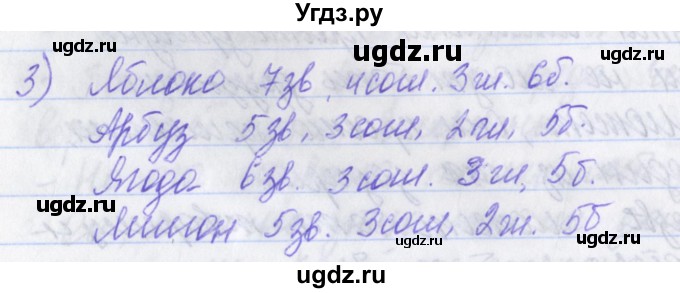 Угдз.ру
ugdz.ru ugdz.ru ugdz.ru
3) Яблоко 7зв. 4согл. 3гл. 6б.
ugdz.ru
Арбуз 5зв, 3согл, 2гл, 5б.
ugdz.ru
Ягода 6зв. 3согл. 3гл, 5б.
ugdz.ru ugdz.ru
Лимон 5зв. 3согл, 2гл. 5б
ugdz.ru ugdz.ru
ugdz.ru